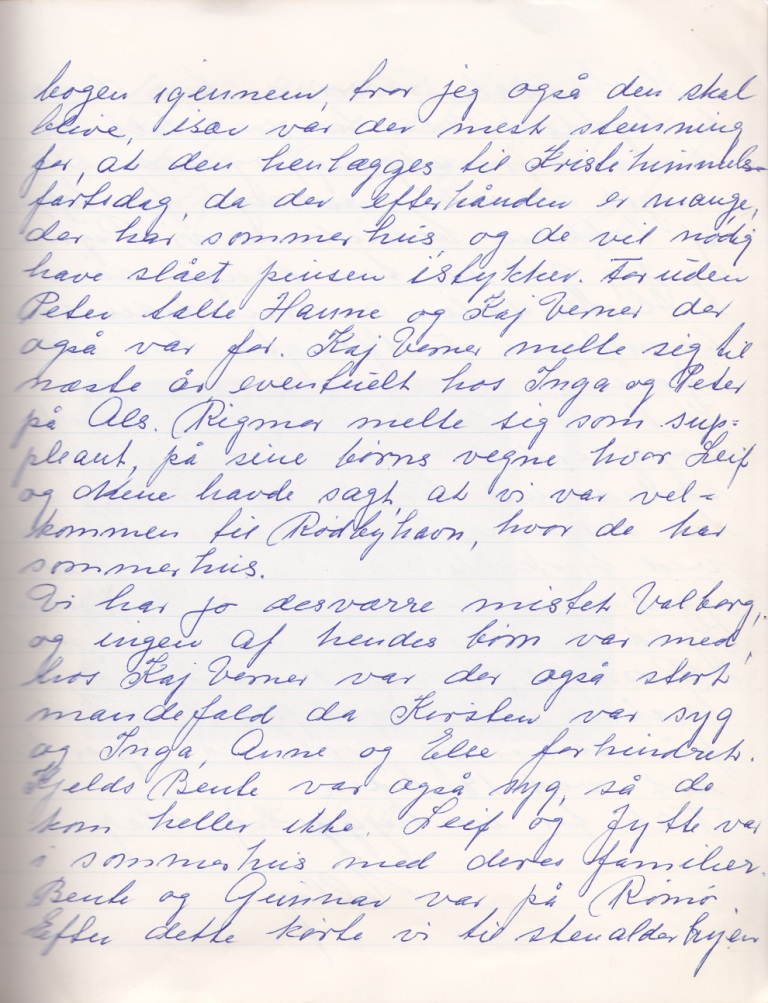 bogen igennem, tror jeg også den skal
blive, især var der mest stemning
for, at den henlægges til Kristihimmels=
fartsdag, da der efterhånden er mange,
der har sommerhus, og de vil nødig
have slået pinsen istykker. Foruden
Peter talte Hanne og Kaj Verner der
også var for. Kaj Verner melte sig til
næste år eventuelt hos Inga og Peter
på Als. Rigmor melte sig som sup=
pleant, på sine børns vegne hvor Leif
og Mene havde sagt, at vi var vel=
kommen til Rødbyhavn, hvor de har
sommerhus.
Vi har jo desværre mistet Valborg,
og ingen af hendes børn var med,
hos Kaj Verner var der også stort
mandefald da Kirsten var syg
og Inga, Anne og Else forhindret.
Kjelds Bente var også syg, så de
kom heller ikke. Leif og Jytte var
i sommerhus med deres familier.
Bente og Gunnar var på Rømø.
Efter dette kørte vi til stenalderbyen